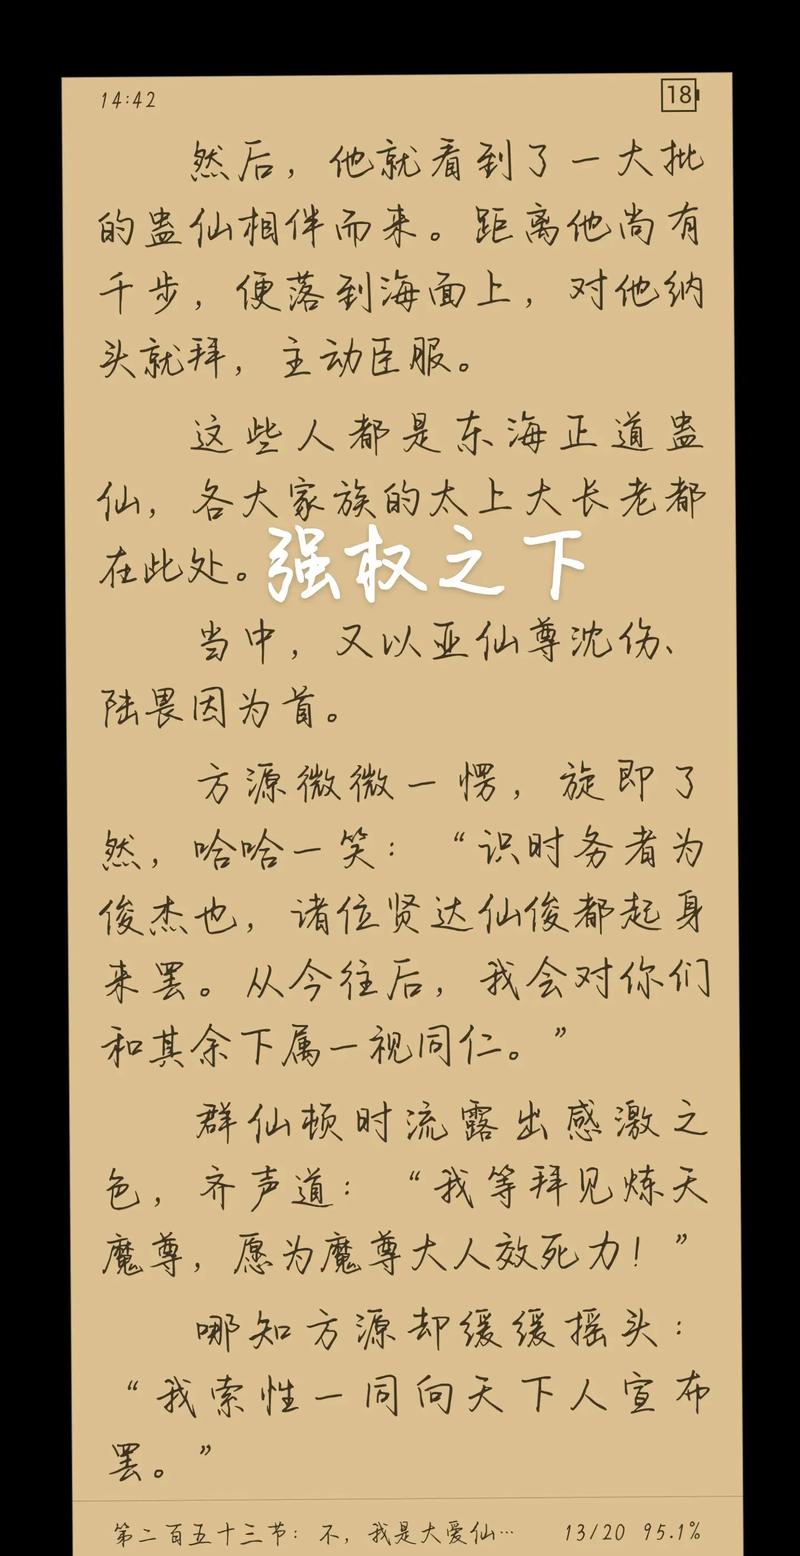 14:42
18
然后，他就看到了一大批
的蛊仙相伴而来。距离他尚有
千步，便落到海面上，对他纳
头就拜，主动臣服。
这些人都是东海正道蛊
仙，各大家族的太上大长老都
在此处。
强权之下
当中，又以亚仙尊沈伤、
陆畏因为首。
方源微微一愣，旋即了
然，哈哈一笑：“识时务者为
俊杰也，诸位贤达仙俊都起身
来罢。从今往后，我会对你们
和其余下属一视同仁。”
群仙顿时流露出感激之
色，齐声道：“我等拜见炼天
魔尊，愿为魔尊大人效死力！”
哪知方源却缓缓摇头：
“我索性一同向天下人宣布
罢。”
第二百五十三节：不，我是大爱仙… 13/20 95.1%